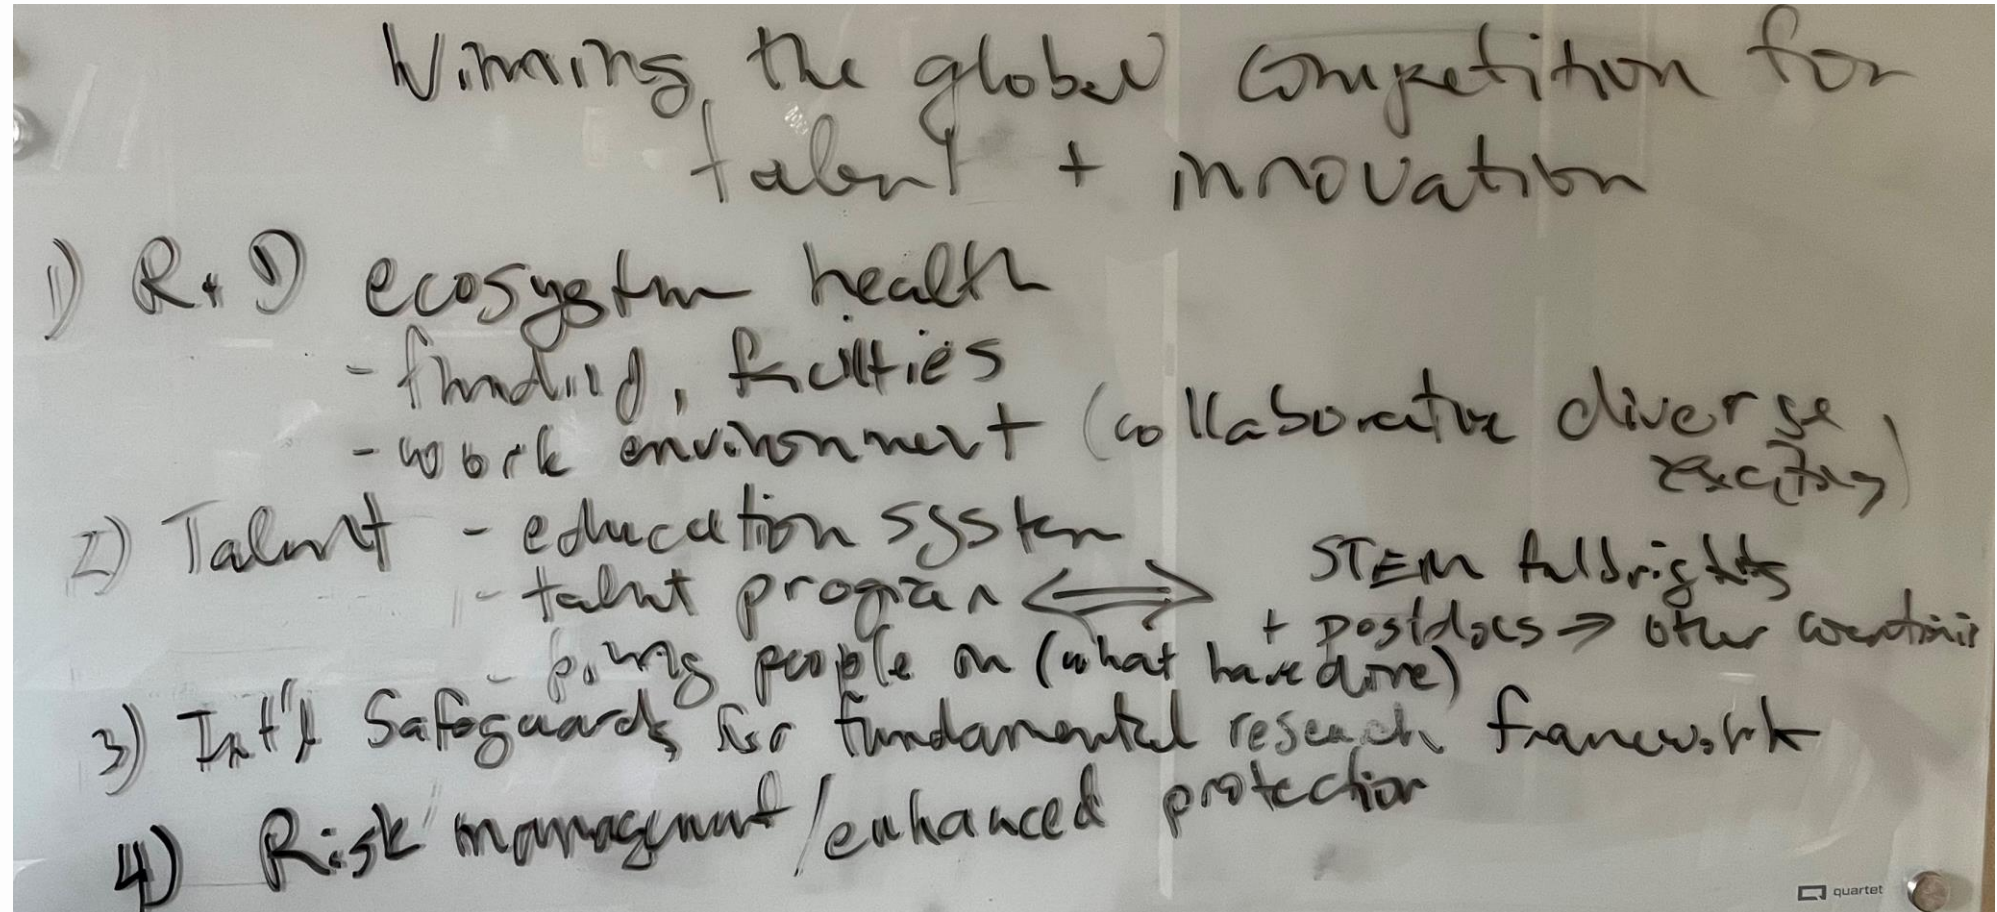 Winning the global competition for
talent + innovation
1) R+D ecosystem health
- funding, facilities
- work environment (collaborative diverse
exciting)
2) Talent - education system
- talent program ⟺ STEM fulbrights
+ postdocs ⇒ other countries
- people on (what have done)
3) Int'l Safeguards for fundamental research framework
4) Risk management/enhanced protection
quartet